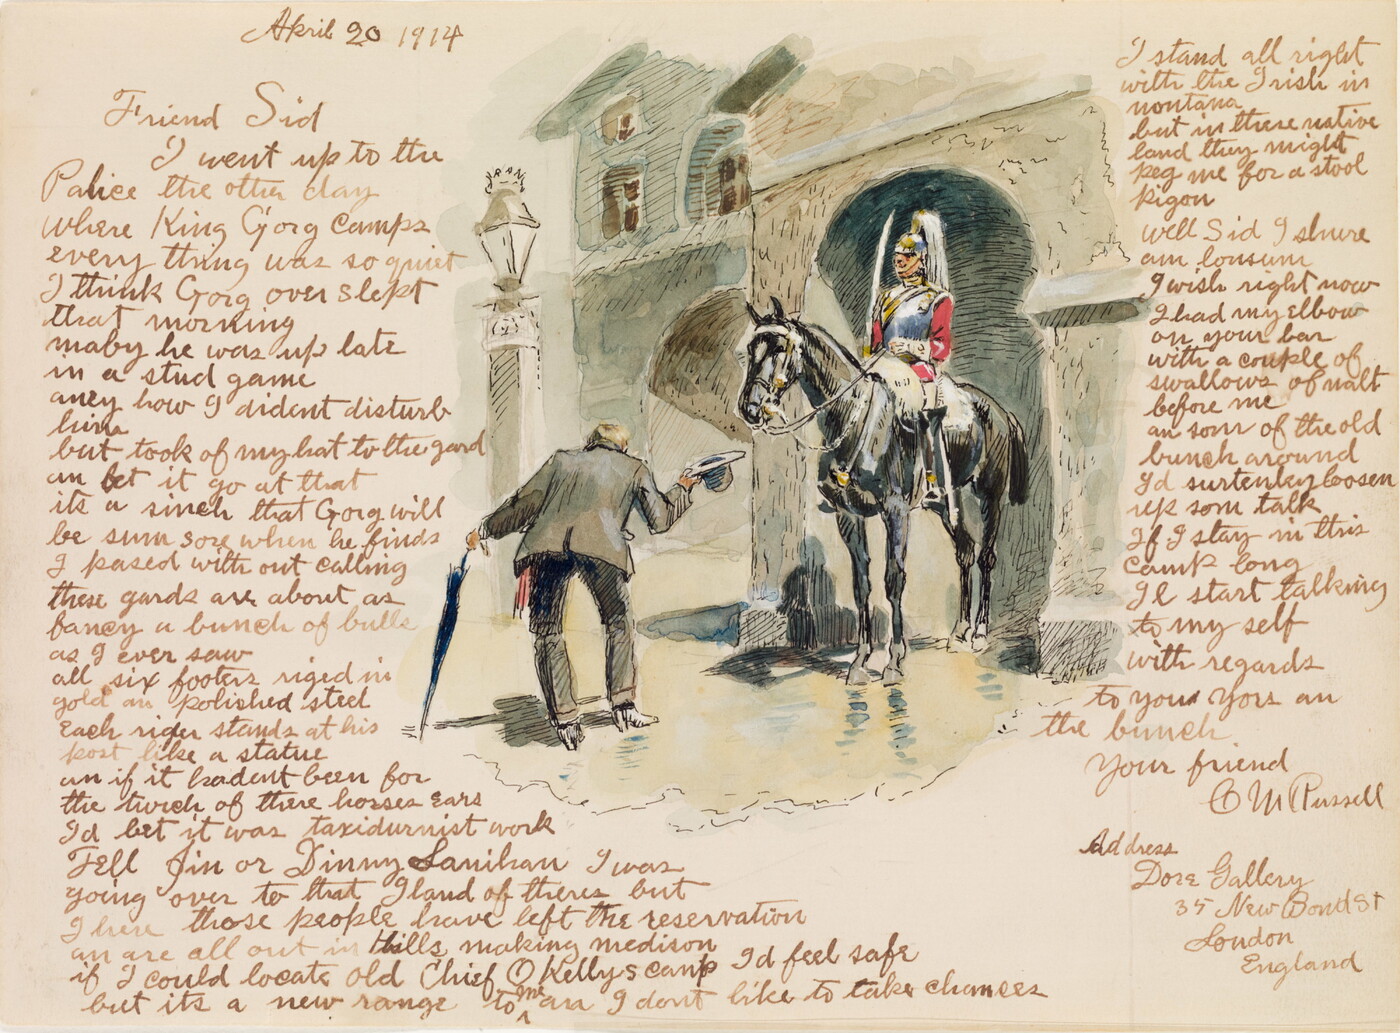 April 20 1914
Friend Sid
I went up to the
Palice the other day
where King Gorg camps
every thing was so quiet
I think Gorg over slept
that morning
maby he was up late
in a stud game
aney how I dident disturb
him
but took of my hat to the gard
an let it go at that
its a sinch that Gorg will
be sum sore when he finds
I pased with out calling
these gards are about as
fancy a bunch of bulls
as I ever saw
all six footers riged in
gold an polished steel
Each rider stands at his
post like a statue
an if it hadent been for
the twich of there horses ears
I'd bet it was taxidurmist work
Tell Jin or Dinny Lanihan I was
going over to that Iland of theres but
I here those people have left the reservation
an are all out in hills making medison
if I could locate old Chief O Kellys camp Id feel safe
but its a new range to me an I dont like to take chances
I stand all right
with the Irish in
montana
but in there native
land they might
peg me for a stool
pigon
well Sid I shure
am lonsum
I wish right now
I had my elbow
on your bar
with a couple of
swallows of malt
before me
an som of the old
bunch around
Id surtenly loosen
up som talk
If I stay in this
camp long
Il start talking
to my self
with regards
to your yors an
the bunch
Your friend
C M Russell
Address
Dore Gallery
35 New Bond St
London
England